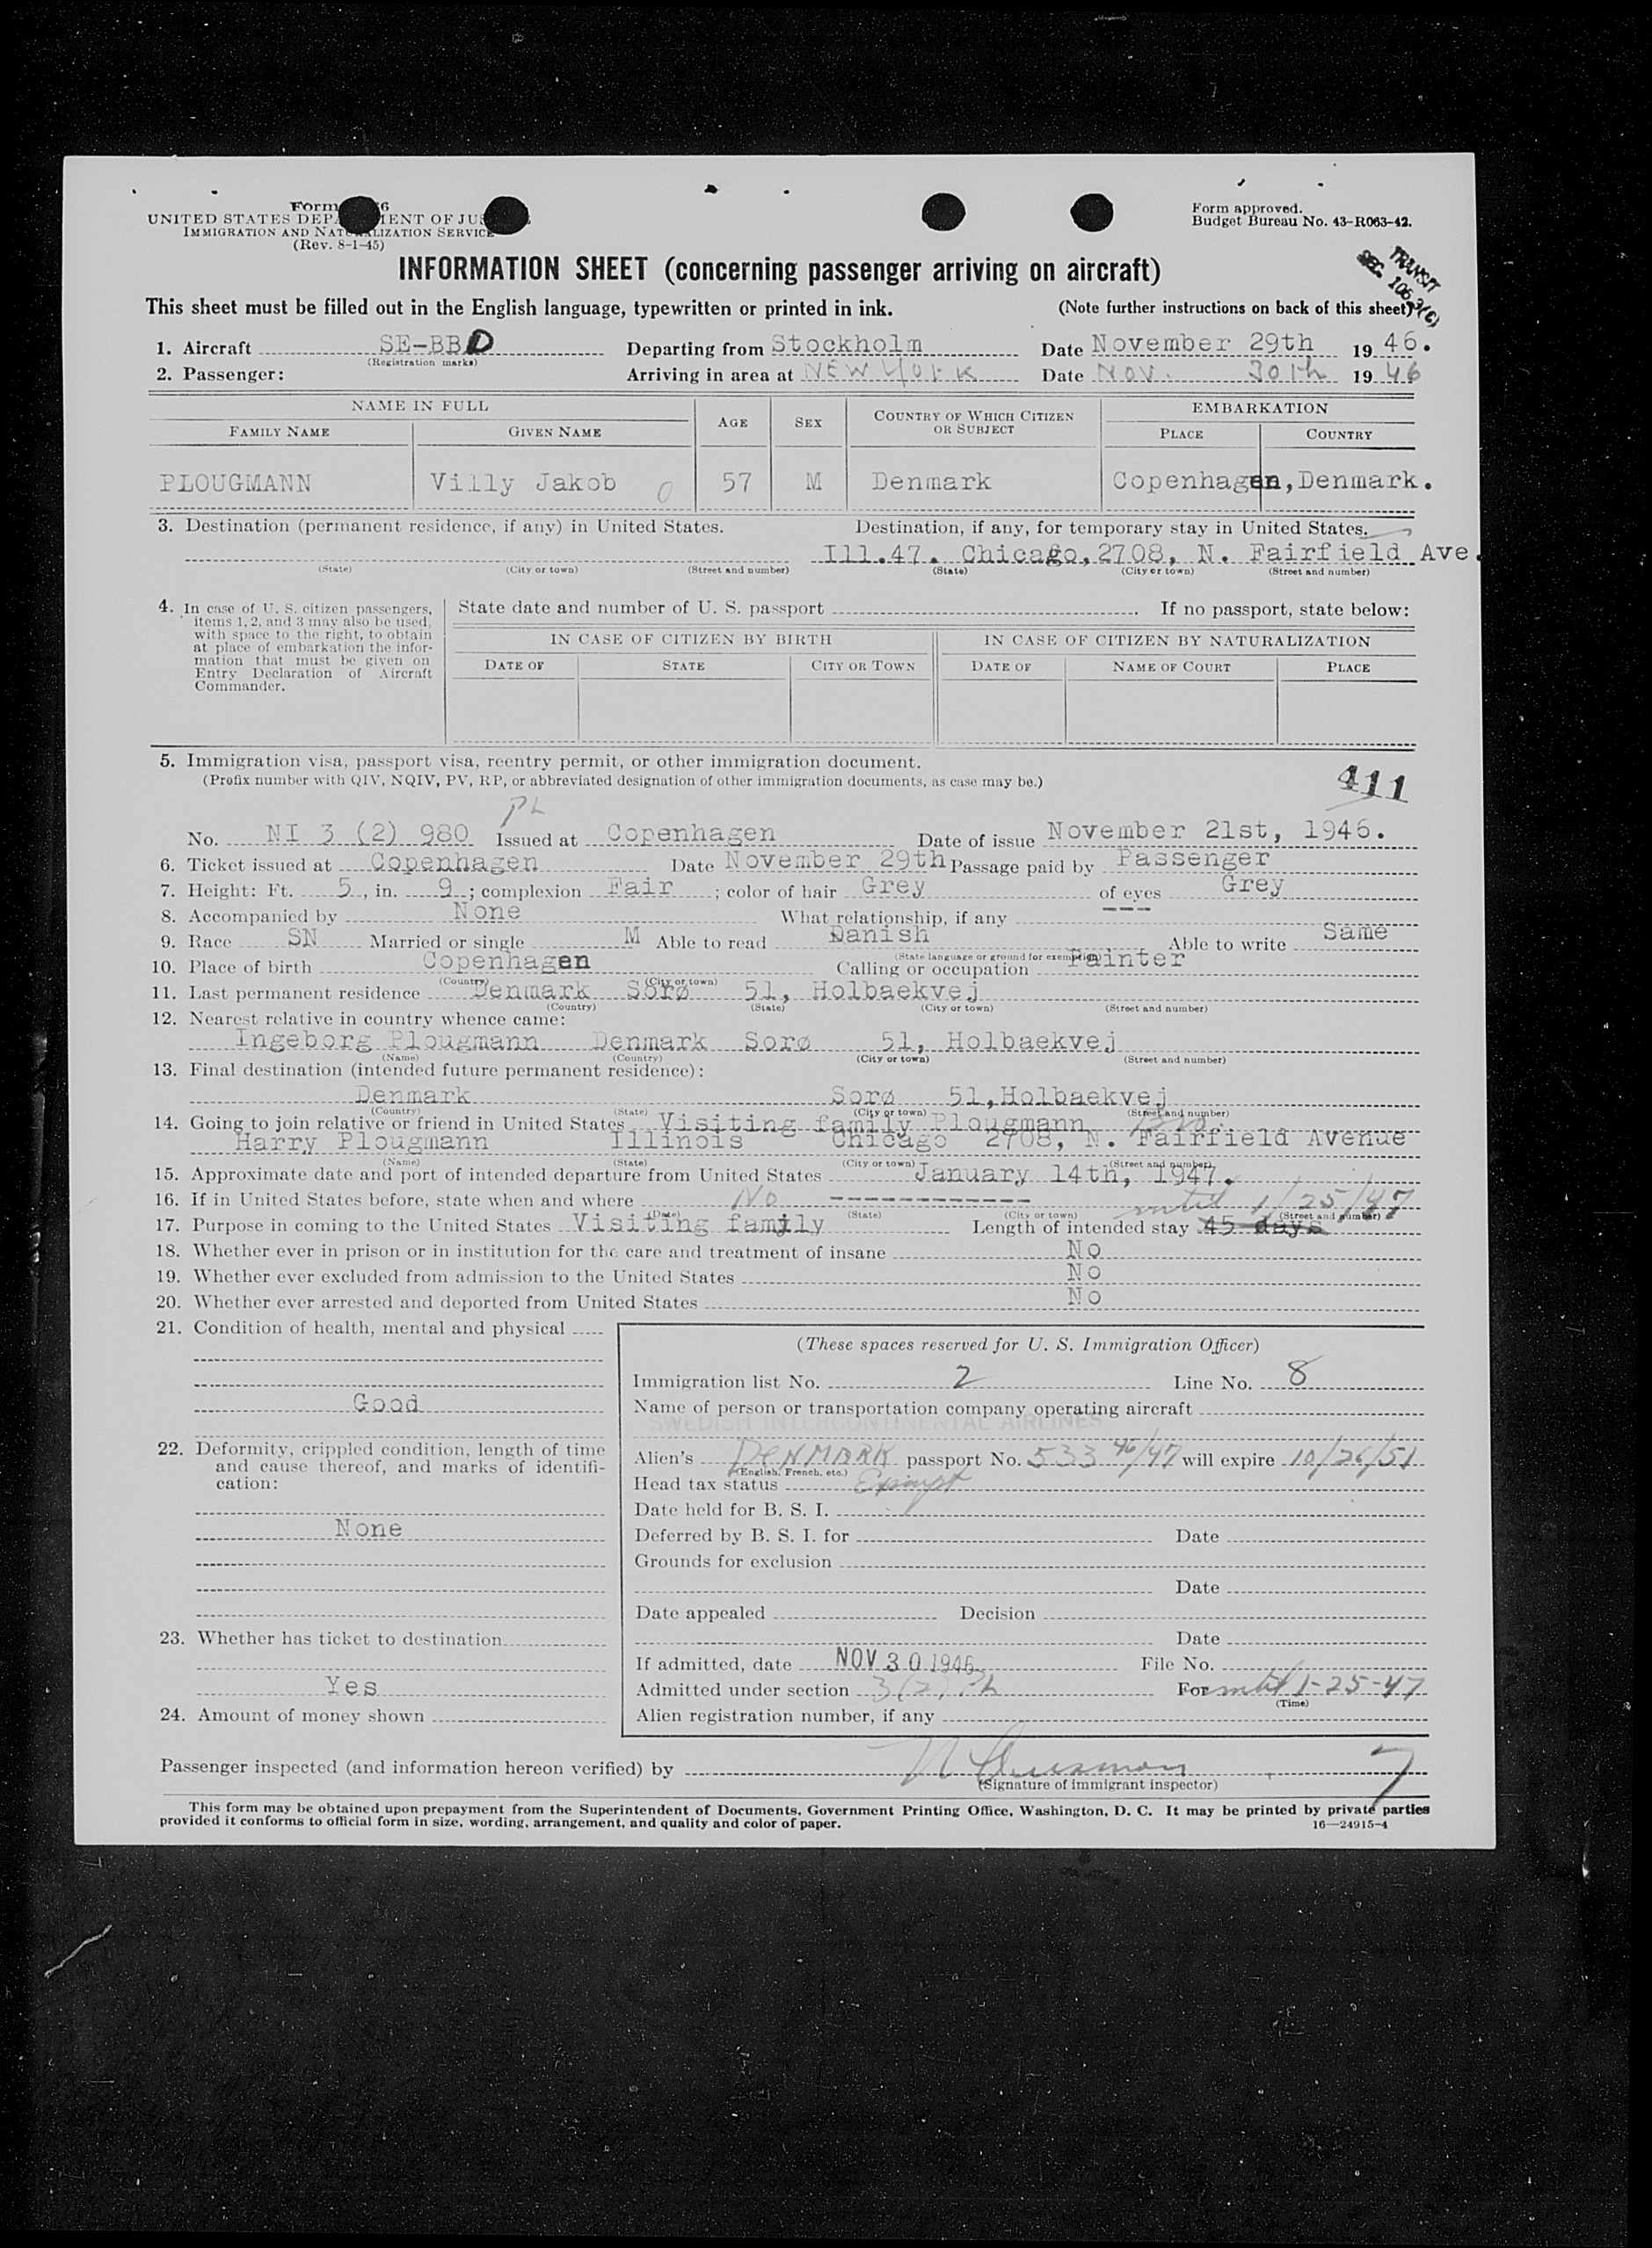 Form
UNITED STATES DEP ENT OF JUS
IMMIGRATION AND NATURALIZATION SERVICE
(Rev. 8-1-45)
Form approved.
Budget Bureau No. 43-R063-42.
TRANSIT
SEC. 106.3(c)
INFORMATION SHEET (concerning passenger arriving on aircraft)
This sheet must be filled out in the English language, typewritten or printed in ink. (Note further instructions on back of this sheet)
1. Aircraft SE-BBD Departing from Stockholm Date November 29th 1946.
(Registration marks)
2. Passenger: Arriving in area at NEW YORK Date Nov. 30th 1946
NAME IN FULL AGE SEX COUNTRY OF WHICH CITIZEN OR SUBJECT EMBARKATION
FAMILY NAME GIVEN NAME PLACE COUNTRY
PLOUGMANN Villy Jakob 0 57 M Denmark Copenhagen, Denmark.
3. Destination (permanent residence, if any) in United States. Destination, if any, for temporary stay in United States.
Ill.47. Chicago,2708, N. Fairfield Ave.
(State) (City or town) (Street and number) (State) (City or town) (Street and number)
4. In case of U. S. citizen passengers, items 1, 2, and 3 may also be used, with space to the right, to obtain at place of embarkation the information that must be given on Entry Declaration of Aircraft Commander.
State date and number of U. S. passport . If no passport, state below:
IN CASE OF CITIZEN BY BIRTH IN CASE OF CITIZEN BY NATURALIZATION
DATE OF STATE CITY OR TOWN DATE OF NAME OF COURT PLACE
5. Immigration visa, passport visa, reentry permit, or other immigration document.
(Prefix number with QIV, NQIV, PV, RP, or abbreviated designation of other immigration documents, as case may be.)
411
PL
No. NI 3 (2) 980 Issued at Copenhagen Date of issue November 21st, 1946.
6. Ticket issued at Copenhagen Date November 29th Passage paid by Passenger
7. Height: Ft. 5, in. 9; complexion Fair; color of hair Grey of eyes Grey
8. Accompanied by None What relationship, if any ---
9. Race SN Married or single M Able to read Danish Able to write Same
(State language or ground for exemption)
10. Place of birth Copenhagen Calling or occupation Painter
(Country) (City or town)
11. Last permanent residence Denmark Sorø 51, Holbaekvej
(Country) (State) (City or town) (Street and number)
12. Nearest relative in country whence came:
Ingeborg Plougmann Denmark Sorø 51, Holbaekvej
(Name) (Country) (City or town) (Street and number)
13. Final destination (intended future permanent residence):
Denmark Sorø 51,Holbaekvej
(Country) (State) (City or town) (Street and number)
14. Going to join relative or friend in United States Visiting family Plougmann Bro.
Harry Plougmann Illinois Chicago 2708, N. Fairfield Avenue
(Name) (State) (City or town) (Street and number)
15. Approximate date and port of intended departure from United States January 14th, 1947.
16. If in United States before, state when and where No -------------
until 1/25/47
(Date) (State) (City or town) (Street and number)
17. Purpose in coming to the United States Visiting family Length of intended stay 45 days
18. Whether ever in prison or in institution for the care and treatment of insane No
19. Whether ever excluded from admission to the United States No
20. Whether ever arrested and deported from United States No
21. Condition of health, mental and physical
Good
22. Deformity, crippled condition, length of time and cause thereof, and marks of identification:
None
23. Whether has ticket to destination
Yes
24. Amount of money shown
(These spaces reserved for U. S. Immigration Officer)
Immigration list No. 2 Line No. 8
Name of person or transportation company operating aircraft
SWEDISH INTERCONTINENTAL AIRLINES
Alien's DENMARK passport No. 533 46/47 will expire 10/26/51
(English, French, etc.)
Head tax status Exempt
Date held for B. S. I.
Deferred by B. S. I. for Date
Grounds for exclusion
Date
Date appealed Decision
Date
If admitted, date NOV 30 1946 File No.
Admitted under section 3(2) For until 1-25-47
(Time)
Alien registration number, if any
Passenger inspected (and information hereon verified) by
(Signature of immigrant inspector)
7
This form may be obtained upon prepayment from the Superintendent of Documents, Government Printing Office, Washington, D. C. It may be printed by private parties
provided it conforms to official form in size, wording, arrangement, and quality and color of paper. 16—24915-4